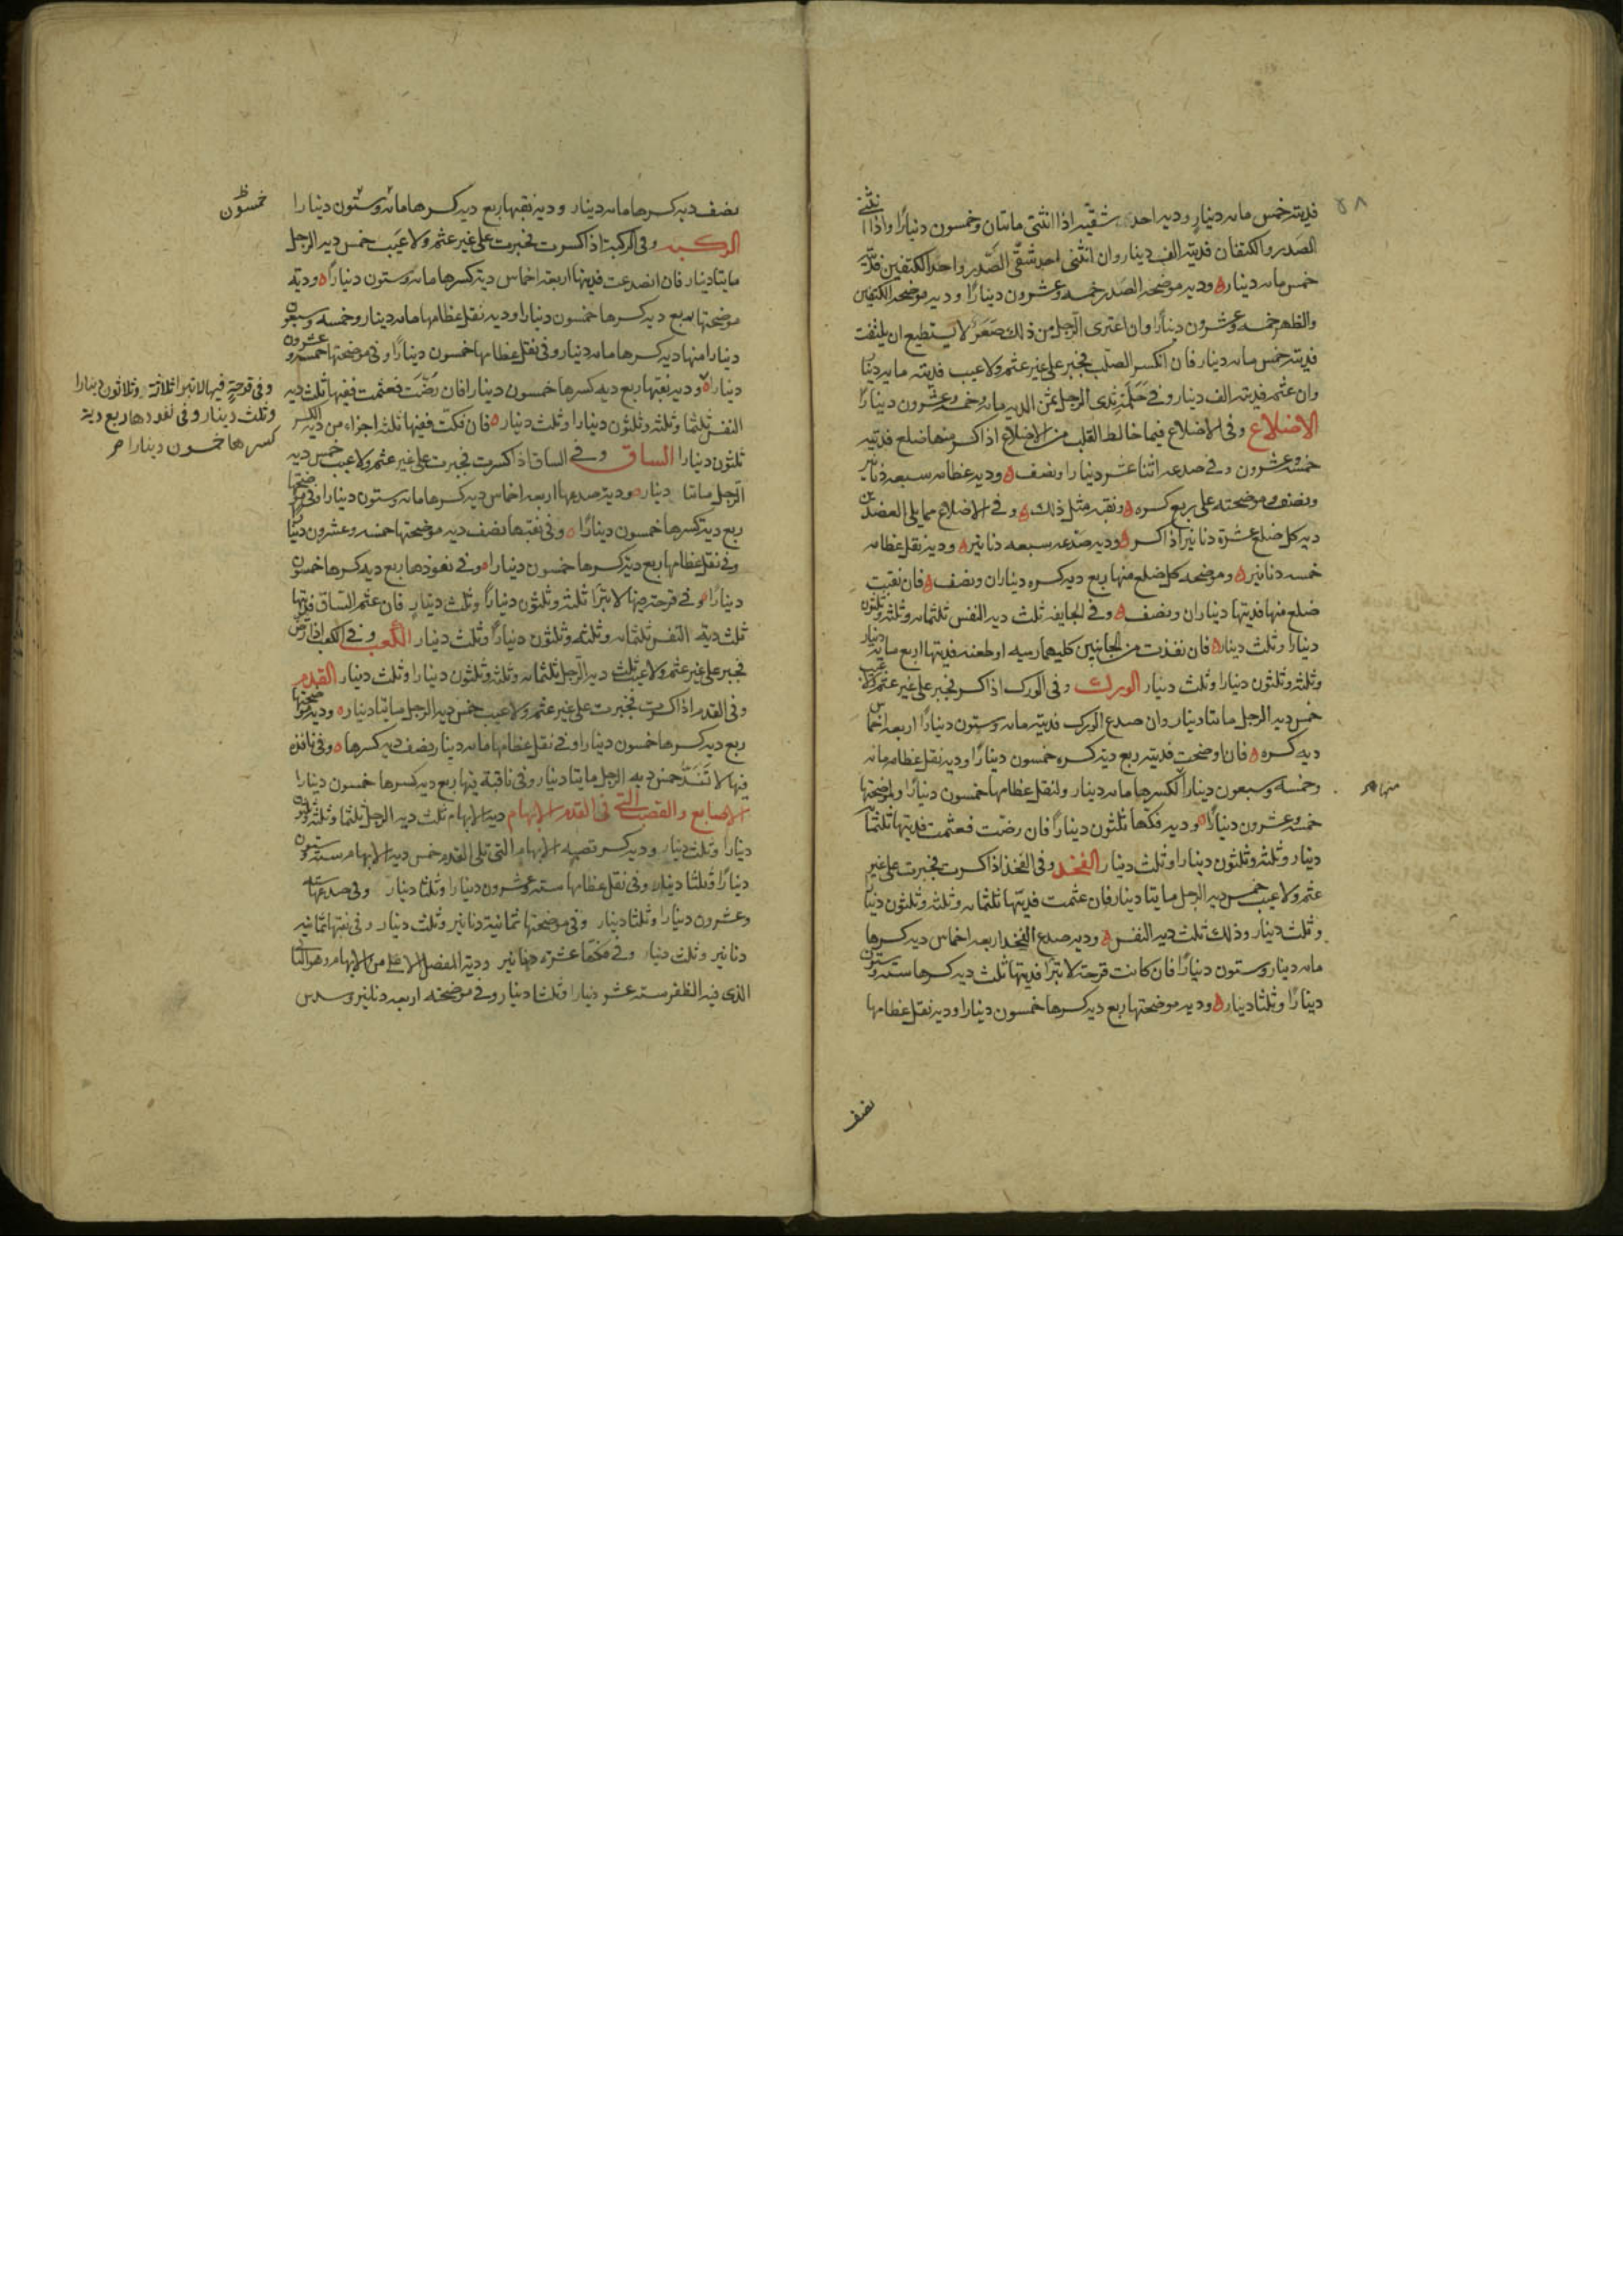 فديته خمس مائه دينار ودية احد شقيه اذا انثنى مائتان وخمسون دينارًا واذا انثنى
الصدر والكتفان فديته الف دينار وان انثنى احد شقى الصدر واحد الكتفين فديته
خمس مائه دينار ودية موضحه الصدر خمسه وعشرون دينارًا ودية موضحه الكتفين
والظهر خمسه وعشرون دينارًا وان اعترى الرجل من ذلك صعر لا يستطيع ان يلتفت
فديته خمس مائه دينار فان انكسر الصلب فجبر على غير عثم ولا عيب فديته مايه دينار
وان عثم فديته الف دينار وفى حلمة ثدى الرجل ثمن الديه مايه وخمسه وعشرون دينارًا
الاضلاع وفى الاضلاع فيما خالط القلب من الاضلاع اذا كسر منها ضلع فديته
خمسه وعشرون وفى صدعه اثنا عشر دينارا ونصف ودية عظامه سبعه دنانير
ونصف وموضحته على ربع كسره ونقبه مثل ذلك وفى الاضلاع مما يلى العضدين
دية كل ضلع عشرة دنانير اذا كسر ودية صدعه سبعه دنانير ودية نقل عظامه
خمسه دنانير وموضحه كل ضلع منها ربع دية كسره ديناران ونصف فان نقبت
ضلع منها فديتها ديناران ونصف وفى الجايفه ثلث دية النفس ثلثمائه وثلثه وثلثون
دينارًا وثلث دينار فان نفذت من الجانبين كليهما رميه او طعنه فديتها اربع مايه دينار
وثلثه وثلثون دينارا وثلث دينار الورك وفى الورك اذا كسر فجبر على غير عثم ولا عيب
خمس دية الرجل مائتا دينار وان صدع الورك فديته مائه وستون دينارًا اربعه اخماس
دية كسره فان اوضحت فديته ربع دية كسره خمسون دينارًا ودية نقل عظامه مائه
وخمسه وسبعون دينارًا لكسرها مائه دينار ولنقل عظامها خمسون دينارًا ولموضحتها
منها
خمسه وعشرون دينارًا ودية فكها ثلثون دينارًا فان رضت فعثمت فديتها ثلثمائه
دينار وثلثه وثلثون دينارا وثلث دينار الفخذ وفى الفخذ اذا كسرت فجبرت على غير
عثم ولا عيب خمس دية الرجل مايتا دينار فان عثمت فديتها ثلثمائه وثلثه وثلثون دينارا
وثلث دينار وذلك ثلث دية النفس ودية صدع الفخذ اربعه اخماس دية كسرها
مائه دينار وستون دينارًا فان كانت قرحة لا تبرا فديتها ثلث دية كسرها سته وستون
دينارًا وثلثا دينار ودية موضحتها ربع دية كسرها خمسون دينارا ودية نقل عظامها
نصف
نصف دية كسرها مائه دينار ودية نقبها ربع دية كسرها مائه وستون دينارا
خمسون
الركبه وفى الركبة اذا كسرت فجبرت على غير عثم ولا عيب خمس دية الرجل
مايتا دينار فان انصدعت فديتها اربعه اخماس دية كسرها مائه وستون دينارًا ودية
موضحتها ربع دية كسرها خمسون دينارا ودية نقل عظامها مائه دينار وخمسه وسبعون
دينارا منها دية كسرها مائه دينار وفى نقل عظامها خمسون دينارًا وفى موضحتها خمسه وعشرون
دينارا ودية نقبها ربع دية كسرها خمسون دينارا فان رضت فعثمت ففيها ثلث دية
النفس ثلثمائه وثلثه وثلثون دينارا وثلث دينار فان فكت ففيها ثلثه اجزاء من دية الكسر
وفى قرحة فيها لا تبرا ثلاثة وثلاثون دينارا
وثلث دينار وفى نفوذها ربع دية
كسرها خمسون دينارا
ثلثون دينارا الساق وفى الساق اذا كسرت فجبرت على غير عثم ولا عيب خمس دية
الرجل مائتا دينار ودية صدعها اربعه اخماس دية كسرها مائه وستون دينارا وفى موضحتها
ربع دية كسرها خمسون دينارًا وفى نقبها نصف دية موضحتها خمسه وعشرون دينارا
وفى نقل عظامها ربع دية كسرها خمسون دينارا وفى نفوذها ربع دية كسرها خمسون
دينارًا وفى قرحة فيها لا تبرا ثلثه وثلثون دينارًا وثلث دينار فان عثم الساق فديتها
ثلث دية النفس ثلثمائه وثلثه وثلثون دينارًا وثلث دينار الكعب وفى الكعب اذا رض
فجبر على غير عثم ولا عيب ثلث دية الرجل ثلثمائه وثلثه وثلثون دينارا وثلث دينار القدم
وفى القدم اذا كسرت فجبرت على غير عثم ولا عيب خمس دية الرجل مايتا دينار ودية موضحتها
ربع دية كسرها خمسون دينارا وفى نقل عظامها مائه دينار نصف دية كسرها وفى نافذه
فيها لا تنسد خمس دية الرجل مايتا دينار وفى ناقبة فيها ربع دية كسرها خمسون دينارا
الاصابع والقصب التى فى القدم الابهام دية الابهام ثلث دية الرجل ثلثمائه وثلثه وثلثون
دينارا وثلث دينار ودية كسر قصبه الابهام التى تلى القدم خمس دية الابهام سته وستون
دينارًا وثلثا دينار وفى نقل عظامها سته وعشرون دينارا وثلثا دينار وفى صدعها سته
وعشرون دينارا وثلثا دينار وفى موضحتها ثمانية دنانير وثلث دينار وفى نقبها ثمانيه
دنانير وثلث دينار وفى فكها عشرة دنانير ودية المفصل الاعلى من الابهام وهو الثانى
الذى فيه الظفر سته عشر دينارا وثلثا دينار وفى موضحته اربعه دنانير وسدس